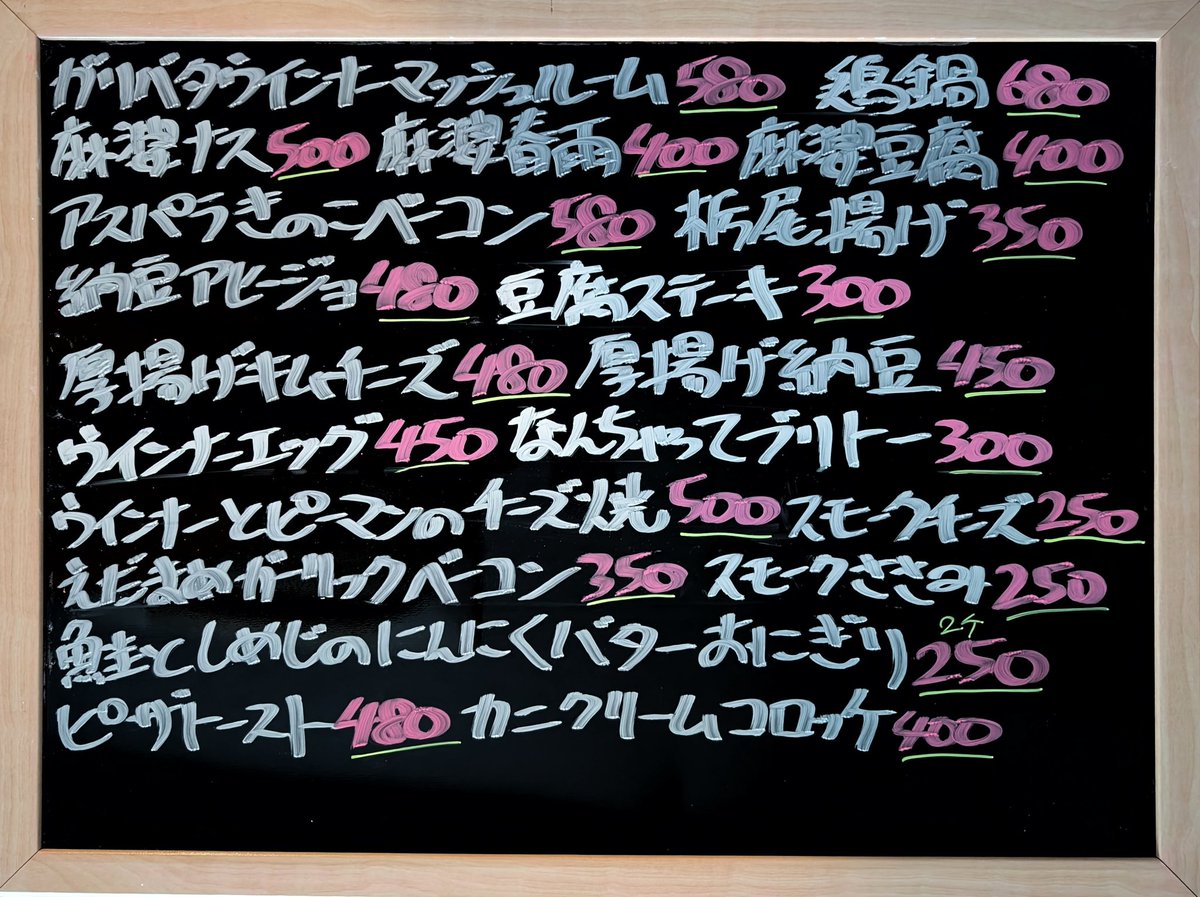 ガリバタウインナーマッシュルーム 580 鶏鍋 680
麻婆ナス 500 麻婆春雨 400 麻婆豆腐 400
アスパラきのこベーコン 580 栃尾揚げ 350
納豆アヒージョ 480 豆腐ステーキ 300
厚揚げキムチーズ 480 厚揚げ納豆 450
ウインナーエッグ 450 なんちゃってブリトー 300
ウインナーとピーマンのチーズ焼 500 スモークチーズ 250
えだまめガーリックベーコン 350 スモークささみ 250
鮭としめじのにんにくバターおにぎり 2ケ 250
ピザトースト 480 カニクリームコロッケ 400